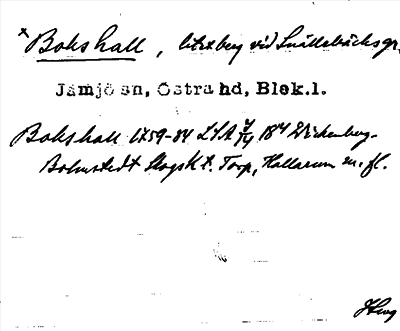 Bokshall, litet berg vid Snällebäcksgr.
Jämjö sn, Östra hd, Blek.l.
Bokshall 1759-84 LSA 184 Wickenberg.
Bolmstedt Skogskt. Torp, Hallarum m.fl.